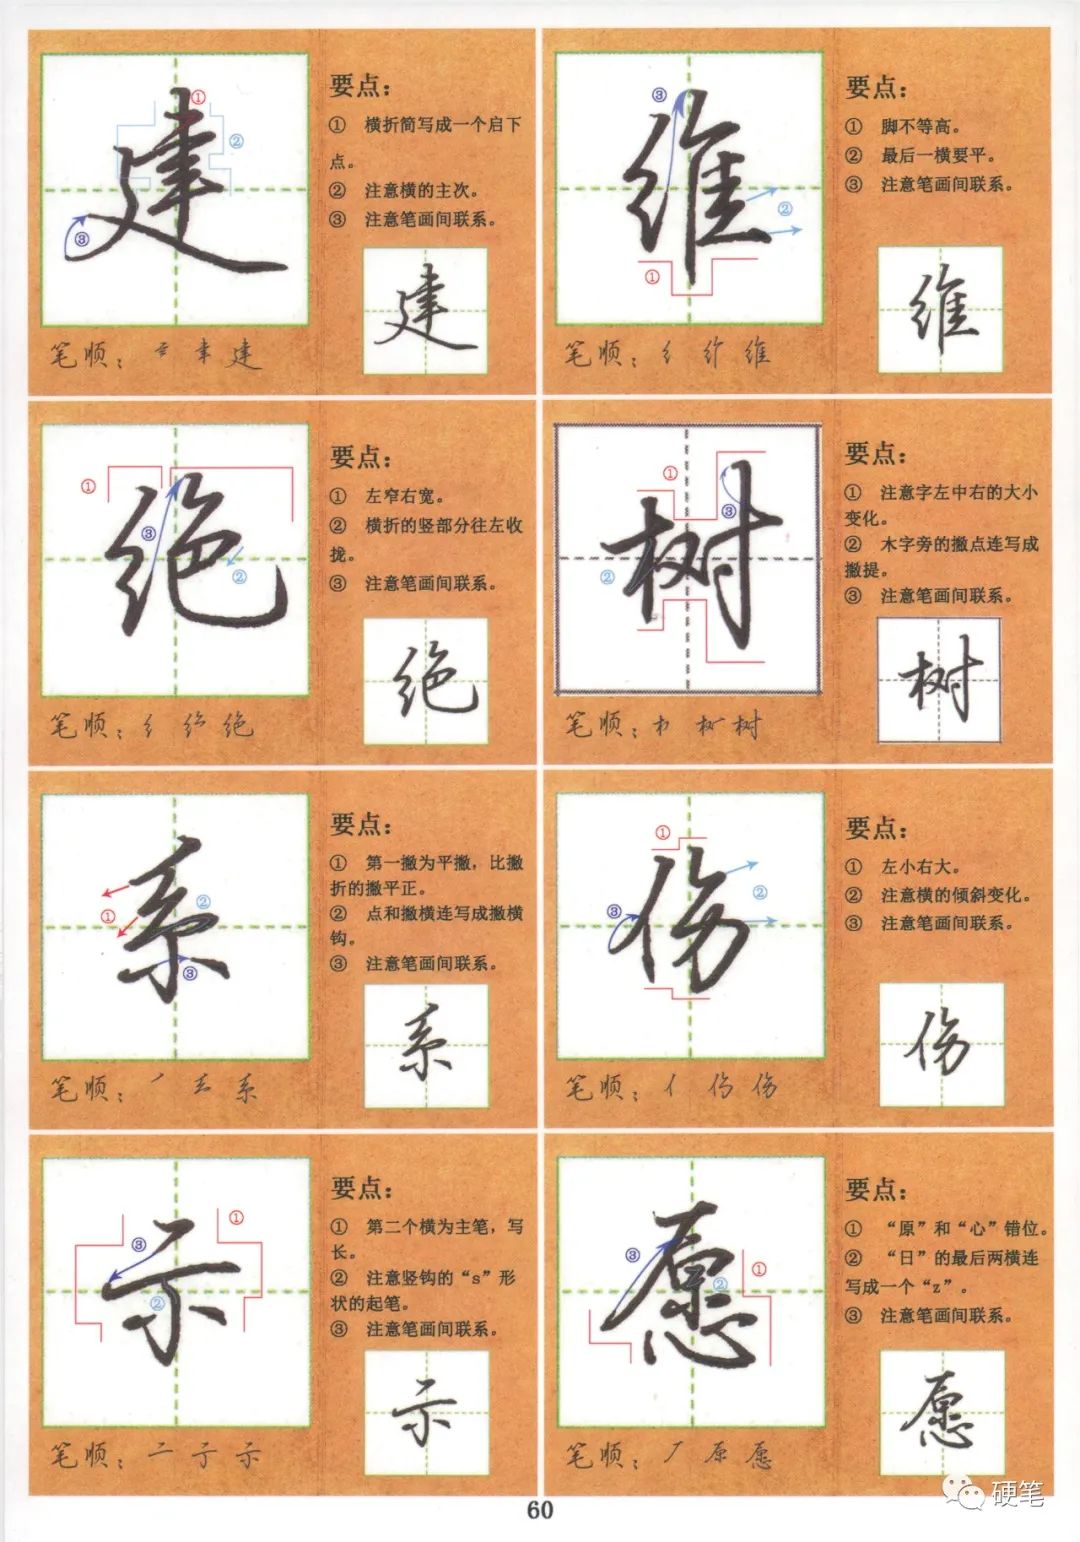 建
①
②
③
要点：
① 横折简写成一个启下
点。
② 注意横的主次。
③ 注意笔画间联系。
建
笔顺： 建
维
③
②
①
要点：
① 脚不等高。
② 最后一横要平。
③ 注意笔画间联系。
维
笔顺： 纟 维
绝
①
③
②
要点：
① 左窄右宽。
② 横折的竖部分往左收
拢。
③ 注意笔画间联系。
绝
笔顺： 纟 绝
树
①
③
②
要点：
① 注意字左中右的大小
变化。
② 木字旁的撇点连写成
撇提。
③ 注意笔画间联系。
树
笔顺： 木 权 树
系
①
②
③
要点：
① 第一撇为平撇，比撇
折的撇平正。
② 点和撇横连写成撇横
钩。
③ 注意笔画间联系。
系
笔顺： 系
伤
①
②
③
要点：
① 左小右大。
② 注意横的倾斜变化。
③ 注意笔画间联系。
伤
笔顺： 亻 伤
示
①
③
②
要点：
① 第二个横为主笔，写
长。
② 注意竖钩的“s”形
状的起笔。
③ 注意笔画间联系。
示
笔顺： 二 亍 示
愿
③
①
②
要点：
① “原”和“心”错位。
② “日”的最后两横连
写成一个“z”。
③ 注意笔画间联系。
愿
笔顺： 厂 原 愿
硬笔
60